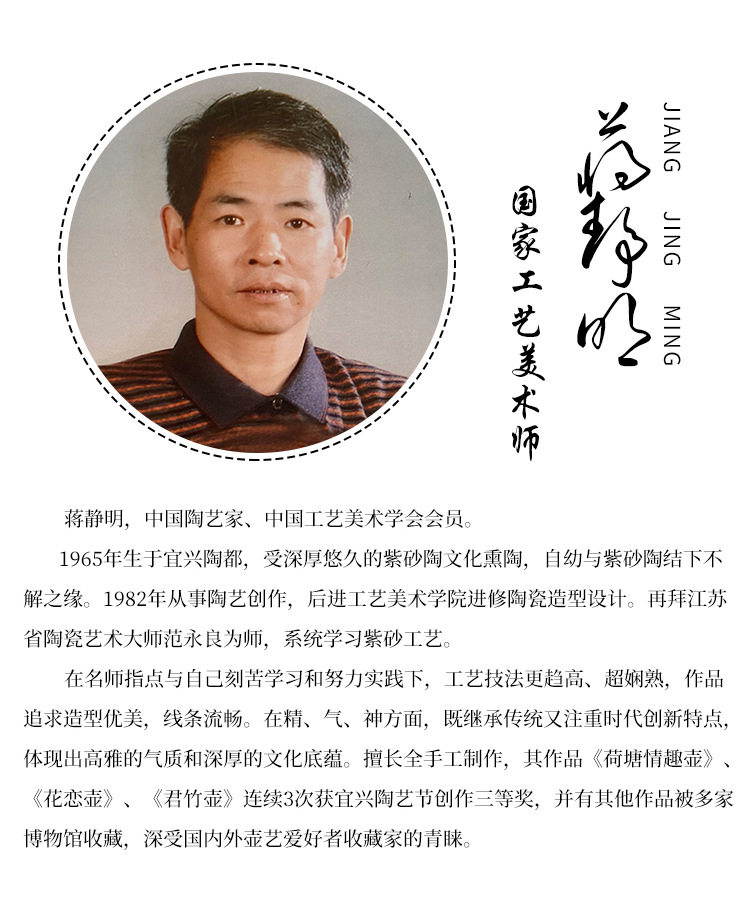 蒋静明
JIANG JING MING
国家工艺美术师
蒋静明，中国陶艺家、中国工艺美术学会会员。
1965年生于宜兴陶都，受深厚悠久的紫砂陶文化熏陶，自幼与紫砂陶结下不
解之缘。1982年从事陶艺创作，后进工艺美术学院进修陶瓷造型设计。再拜江苏
省陶瓷艺术大师范永良为师，系统学习紫砂工艺。
在名师指点与自己刻苦学习和努力实践下，工艺技法更趋高、超娴熟，作品
追求造型优美，线条流畅。在精、气、神方面，既继承传统又注重时代创新特点，
体现出高雅的气质和深厚的文化底蕴。擅长全手工制作，其作品《荷塘情趣壶》、
《花恋壶》、《君竹壶》连续3次获宜兴陶艺节创作三等奖，并有其他作品被多家
博物馆收藏，深受国内外壶艺爱好者收藏家的青睐。